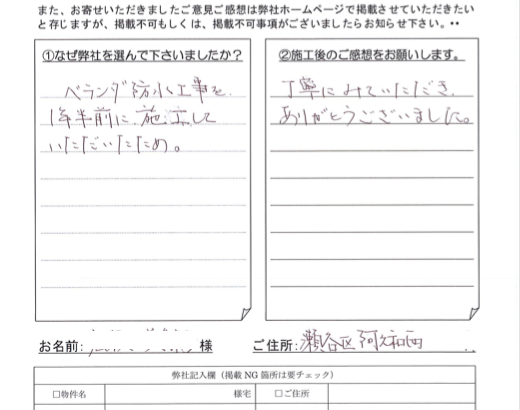 また、お寄せいただきましたご意見ご感想は弊社ホームページで掲載させていただきたい
と存じますが、掲載不可もしくは、掲載不可事項がございましたらお知らせ下さい。••
①なぜ弊社を選んで下さいましたか?
ベランダ防水工事を
1年半前に施工して
いただいたため。
②施工後のご感想をお願いします。
丁寧にみていただき、
ありがとうございました。
お名前: 様
ご住所:瀬谷区阿久和西
弊社記入欄(掲載 NG 箇所は要チェック)
□物件名 様宅 □ご住所